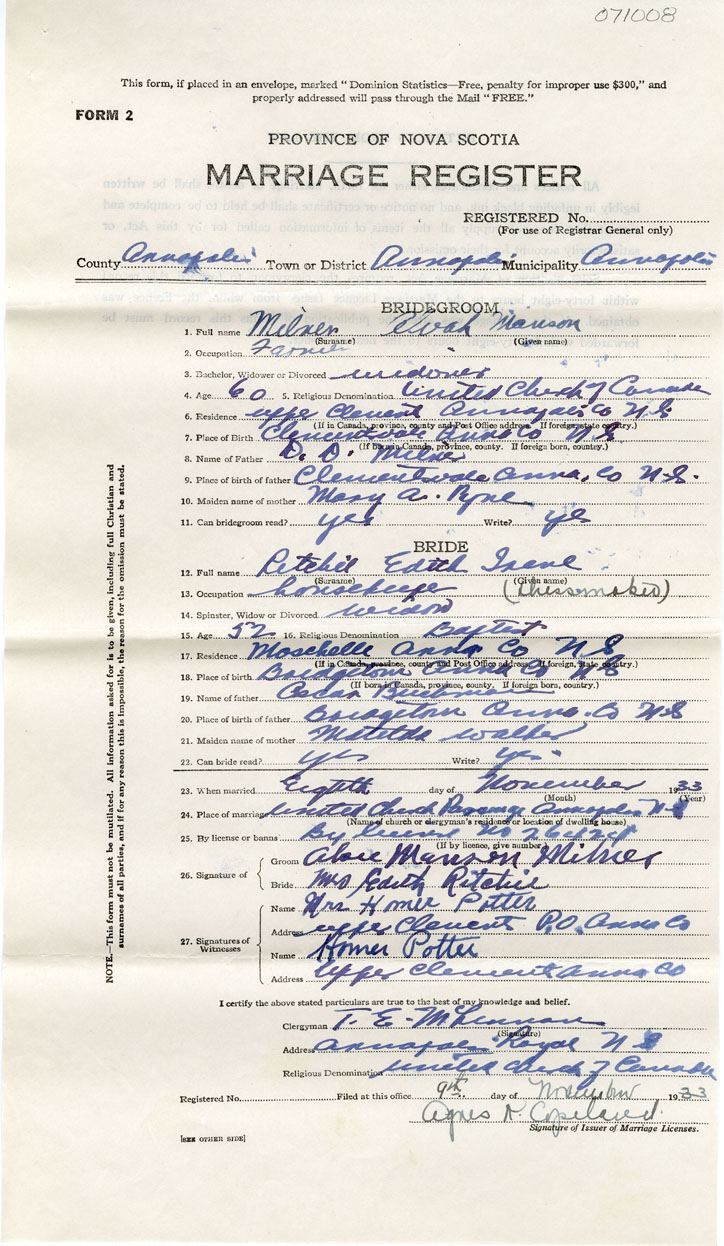 071008
This form, if placed in an envelope, marked "Dominion Statistics—Free, penalty for improper use $300," and
properly addressed will pass through the Mail "FREE."
FORM 2
PROVINCE OF NOVA SCOTIA
MARRIAGE REGISTER
REGISTERED No.
(For use of Registrar General only)
County Annapolis Town or District Annapolis Municipality Annapolis
BRIDEGROOM
1. Full name Milner Manson
(Surname) (Given name)
2. Occupation Farmer
3. Bachelor, Widower or Divorced widower
4. Age 60 5. Religious Denomination United Church of Canada
6. Residence upper Clement Annapolis Co N.S
(If in Canada, province, county and Post Office address. If foreign, state country.)
7. Place of Birth Clementsvale Anna Co N.S
(If born in Canada, province, county. If foreign born, country.)
8. Name of Father D. D. Milner
9. Place of birth of father Clementsvale Anna. Co N.S.
10. Maiden name of mother Mary A. Pyne
11. Can bridegroom read? yes Write? yes
BRIDE
12. Full name Ritchie Edith Irene
(Surname) (Given name)
13. Occupation housekeeper (Dressmaker)
14. Spinster, Widow or Divorced widow
15. Age 52 16. Religious Denomination Baptist
17. Residence Moschelle Anna Co N S
(If in Canada, province, county and Post Office address. If foreign, state country.)
18. Place of birth Bridgetown Anna Co N S
(If born in Canada, province, county. If foreign born, country.)
19. Name of father Oscar
20. Place of birth of father Bridgetown Anna. Co N S
21. Maiden name of mother Matilda Walker
22. Can bride read? yes Write? yes
23. When married Eighth day of November 1933
(Month) (Year)
24. Place of marriage United Church Parsonage Annapolis N S
(Name of church or clergyman's residence or location of dwelling house)
25. By license or banns By license No 26424
(If by licence, give number)
26. Signature of
Groom Manson Milner
Bride Mrs Edith Ritchie
27. Signatures of Witnesses
Name Mrs Homer Potter
Address upper Clement P.O. Anna Co
Name Homer Potter
Address Upper Clement Anna Co
I certify the above stated particulars are true to the best of my knowledge and belief.
Clergyman T. E. McLennan
(Signature)
Address Annapolis Royal N S
Religious Denomination United Church of Canada
Registered No. Filed at this office 9th day of November 1933
Agnes Copeland.
Signature of Issuer of Marriage Licenses.
[SEE OTHER SIDE]
NOTE.—This form must not be mutilated. All information asked for is to be given, including full Christian and
surnames of all parties, and if for any reason this is impossible, the reason for the omission must be stated.